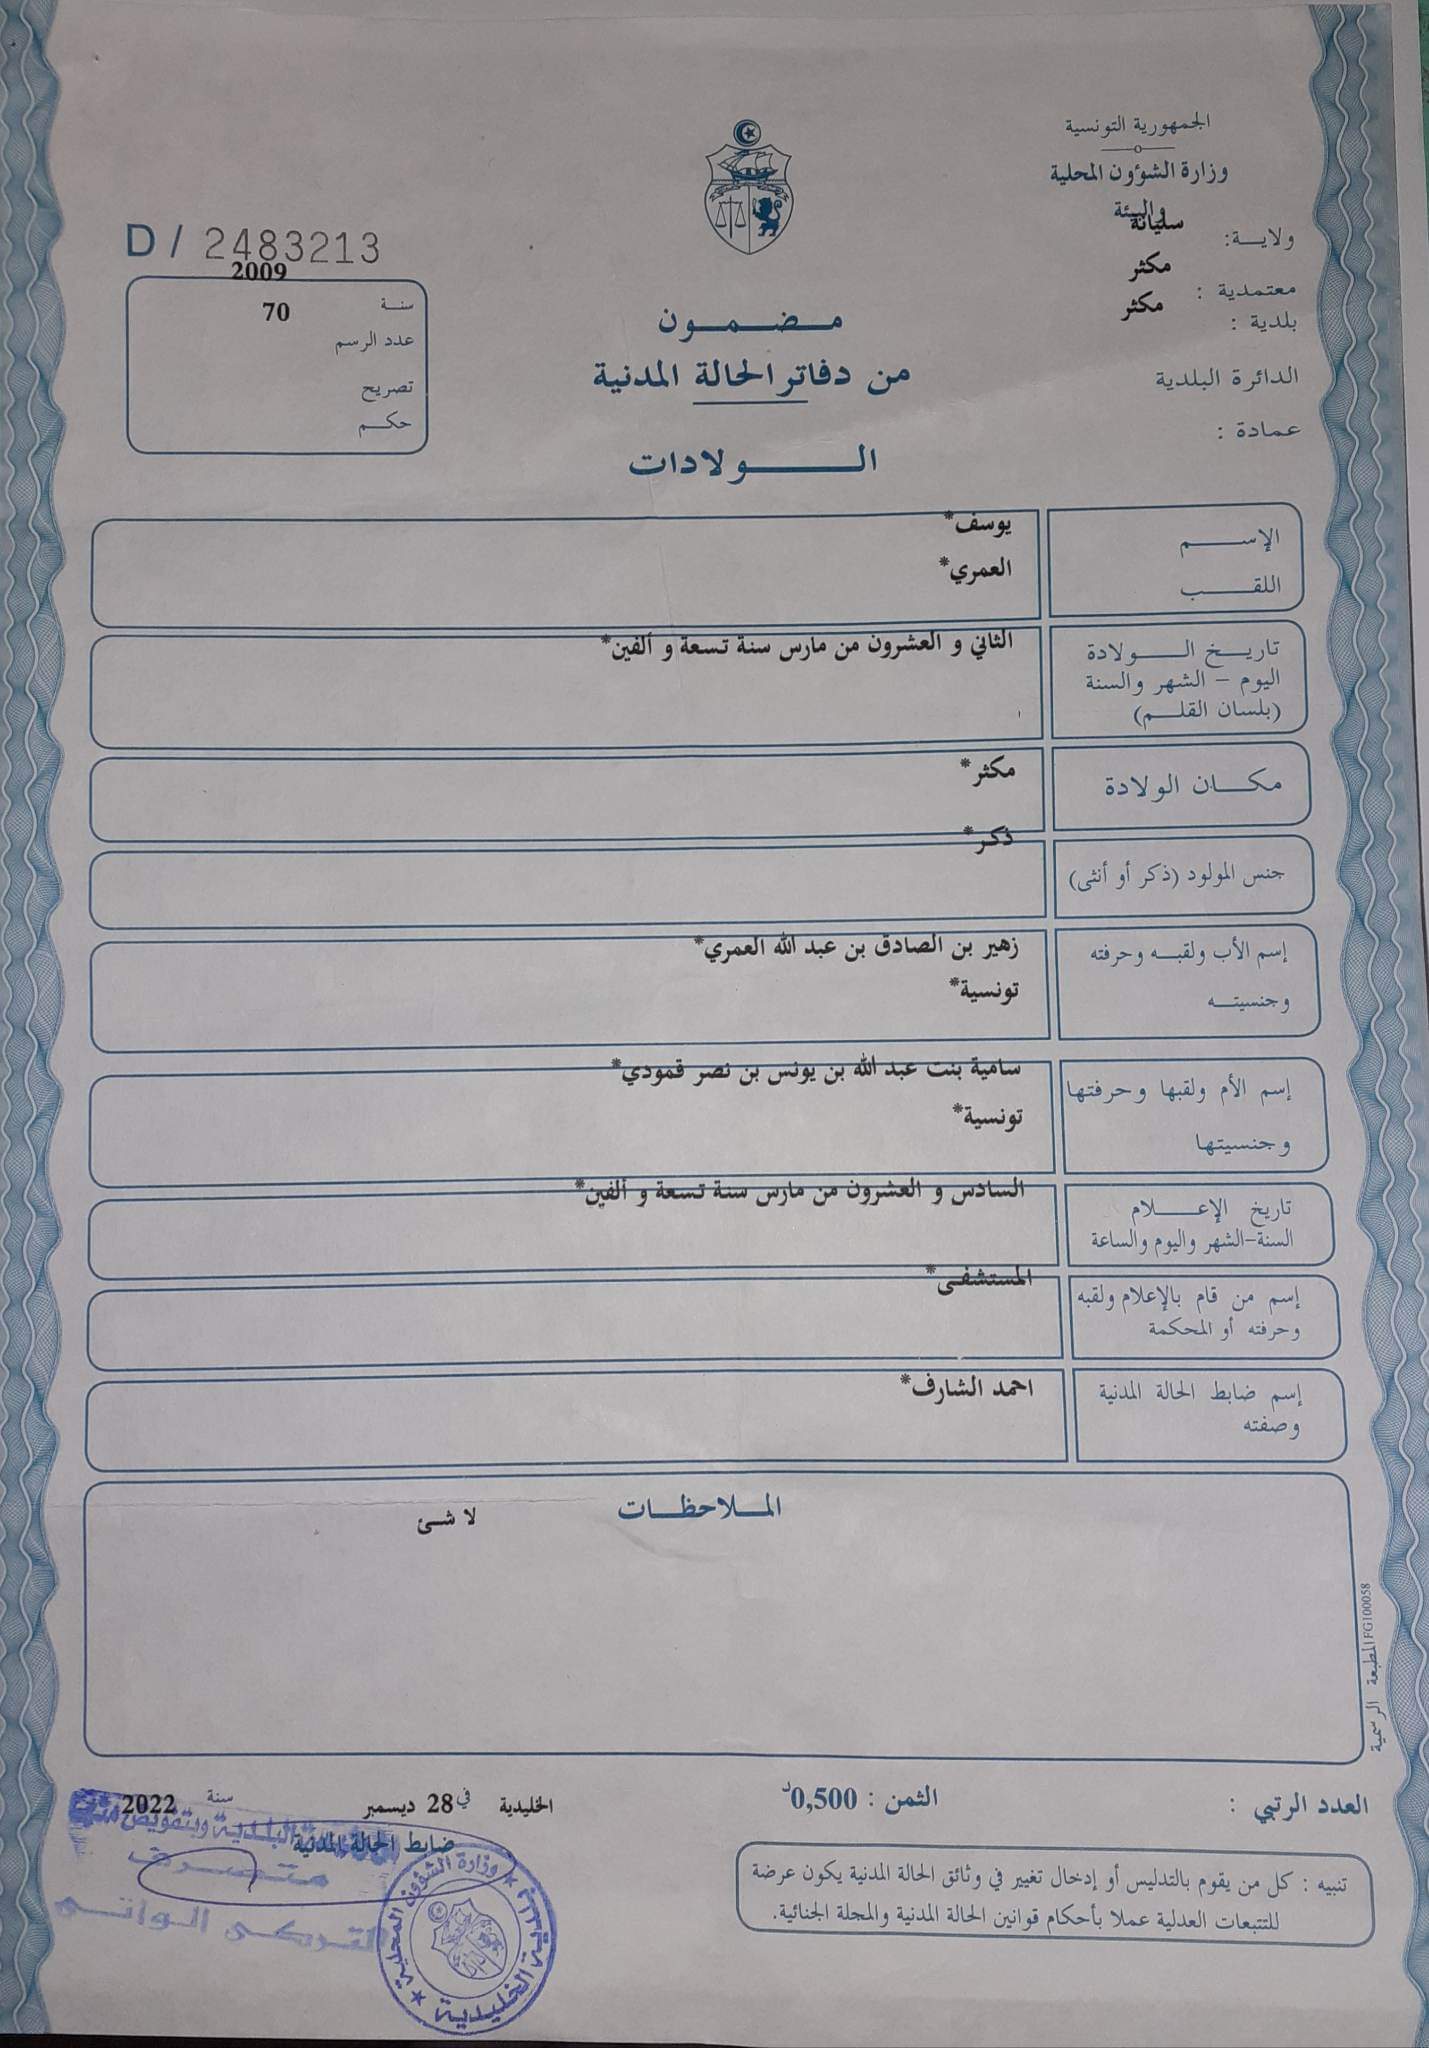 الجمهورية التونسية
وزارة الشؤون المحلية
والبيئة
ولاية: سليانة
معتمدية : مكثر
بلدية : مكثر
الدائرة البلدية
عمادة :
D / 2483213
سنة 2009
عدد الرسم 70
تصريح
حكم
مضمون
من دفاتر الحالة المدنية
الولادات
الإسم يوسف*
اللقب العمري*
تاريخ الولادة الثاني و العشرون من مارس سنة تسعة و ألفين*
اليوم - الشهر والسنة
(بلسان القلم)
مكان الولادة مكثر*
جنس المولود (ذكر أو أنثى) ذكر*
إسم الأب ولقبه وحرفته زهير بن الصادق بن عبد الله العمري*
وجنسيته تونسية*
إسم الأم ولقبها وحرفتها سامية بنت عبد الله بن يونس بن نصر قمودي*
وجنسيتها تونسية*
تاريخ الإعلام السادس و العشرون من مارس سنة تسعة و ألفين*
السنة-الشهر واليوم والساعة
إسم من قام بالإعلام ولقبه المستشفى*
وحرفته أو المحكمة
إسم ضابط الحالة المدنية احمد الشارف*
وصفته
الملاحظات
لا شئ
المطبعة الرسمية FG100058
العدد الرتبي :
الثمن : 0,500د
الخليدية في 28 ديسمبر سنة 2022
ضابط الحالة المدنية
البلدية وبتفويض منه
متصرف
التركي الواتي
وزارة الشؤون المحلية
الخليدية
تنبيه : كل من يقوم بالتدليس أو إدخال تغيير في وثائق الحالة المدنية يكون عرضة
للتتبعات العدلية عملا بأحكام قوانين الحالة المدنية والمجلة الجنائية.